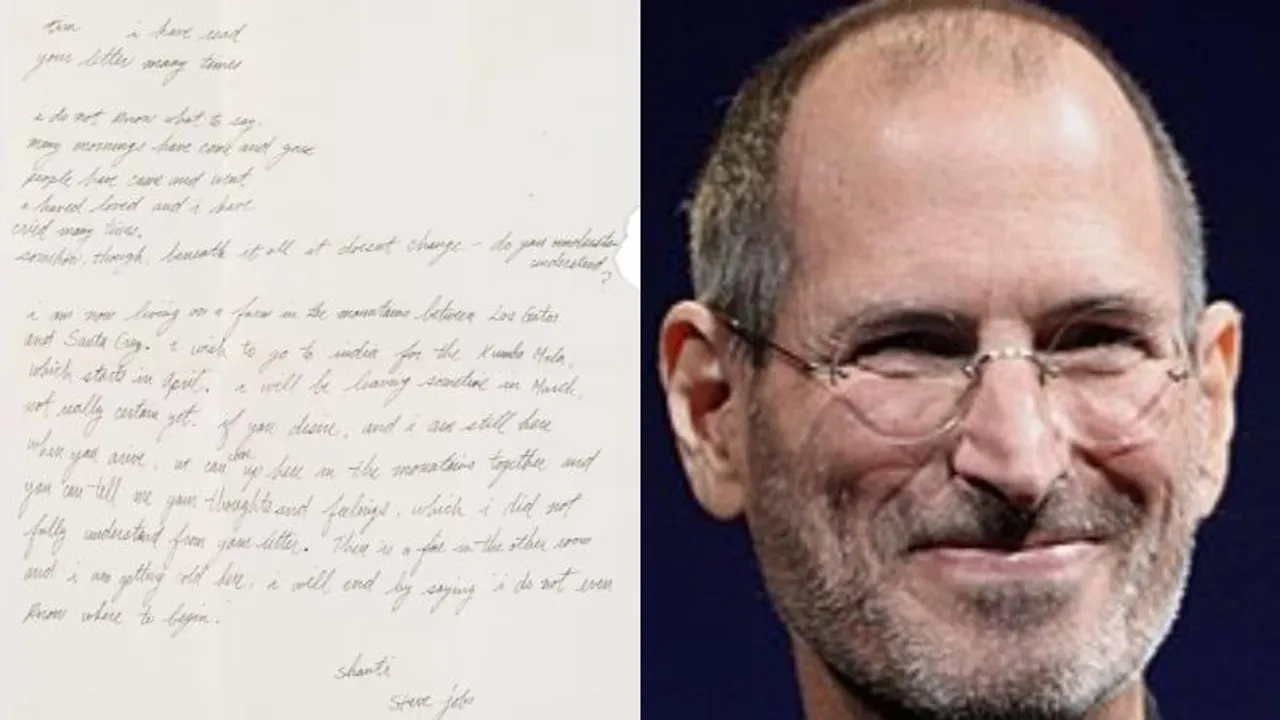 tim i have read
your letter many times
i do not know what to say.
many mornings have come and gone
people have came and went
i haved loved and i have
cried many times.
somehow, though, beneath it all it doesnt change – do you understa
understand?
i am now living on a farm in the mountains between Los Gatos
and Santa Cruz. i wish to go to india for the Kumba Mela,
which starts in April. i will be leaving sometime in March,
not really certain yet. if you desire, and i am still here
when you arive, we can be up here in the mountains together and
you can tell me your thoughts and feelings, which i did not
fully understand from your letter. There is a fire in the other room
and i am getting cold here. i will end by saying i do not even
know where to begin.
shanti
steve jobs